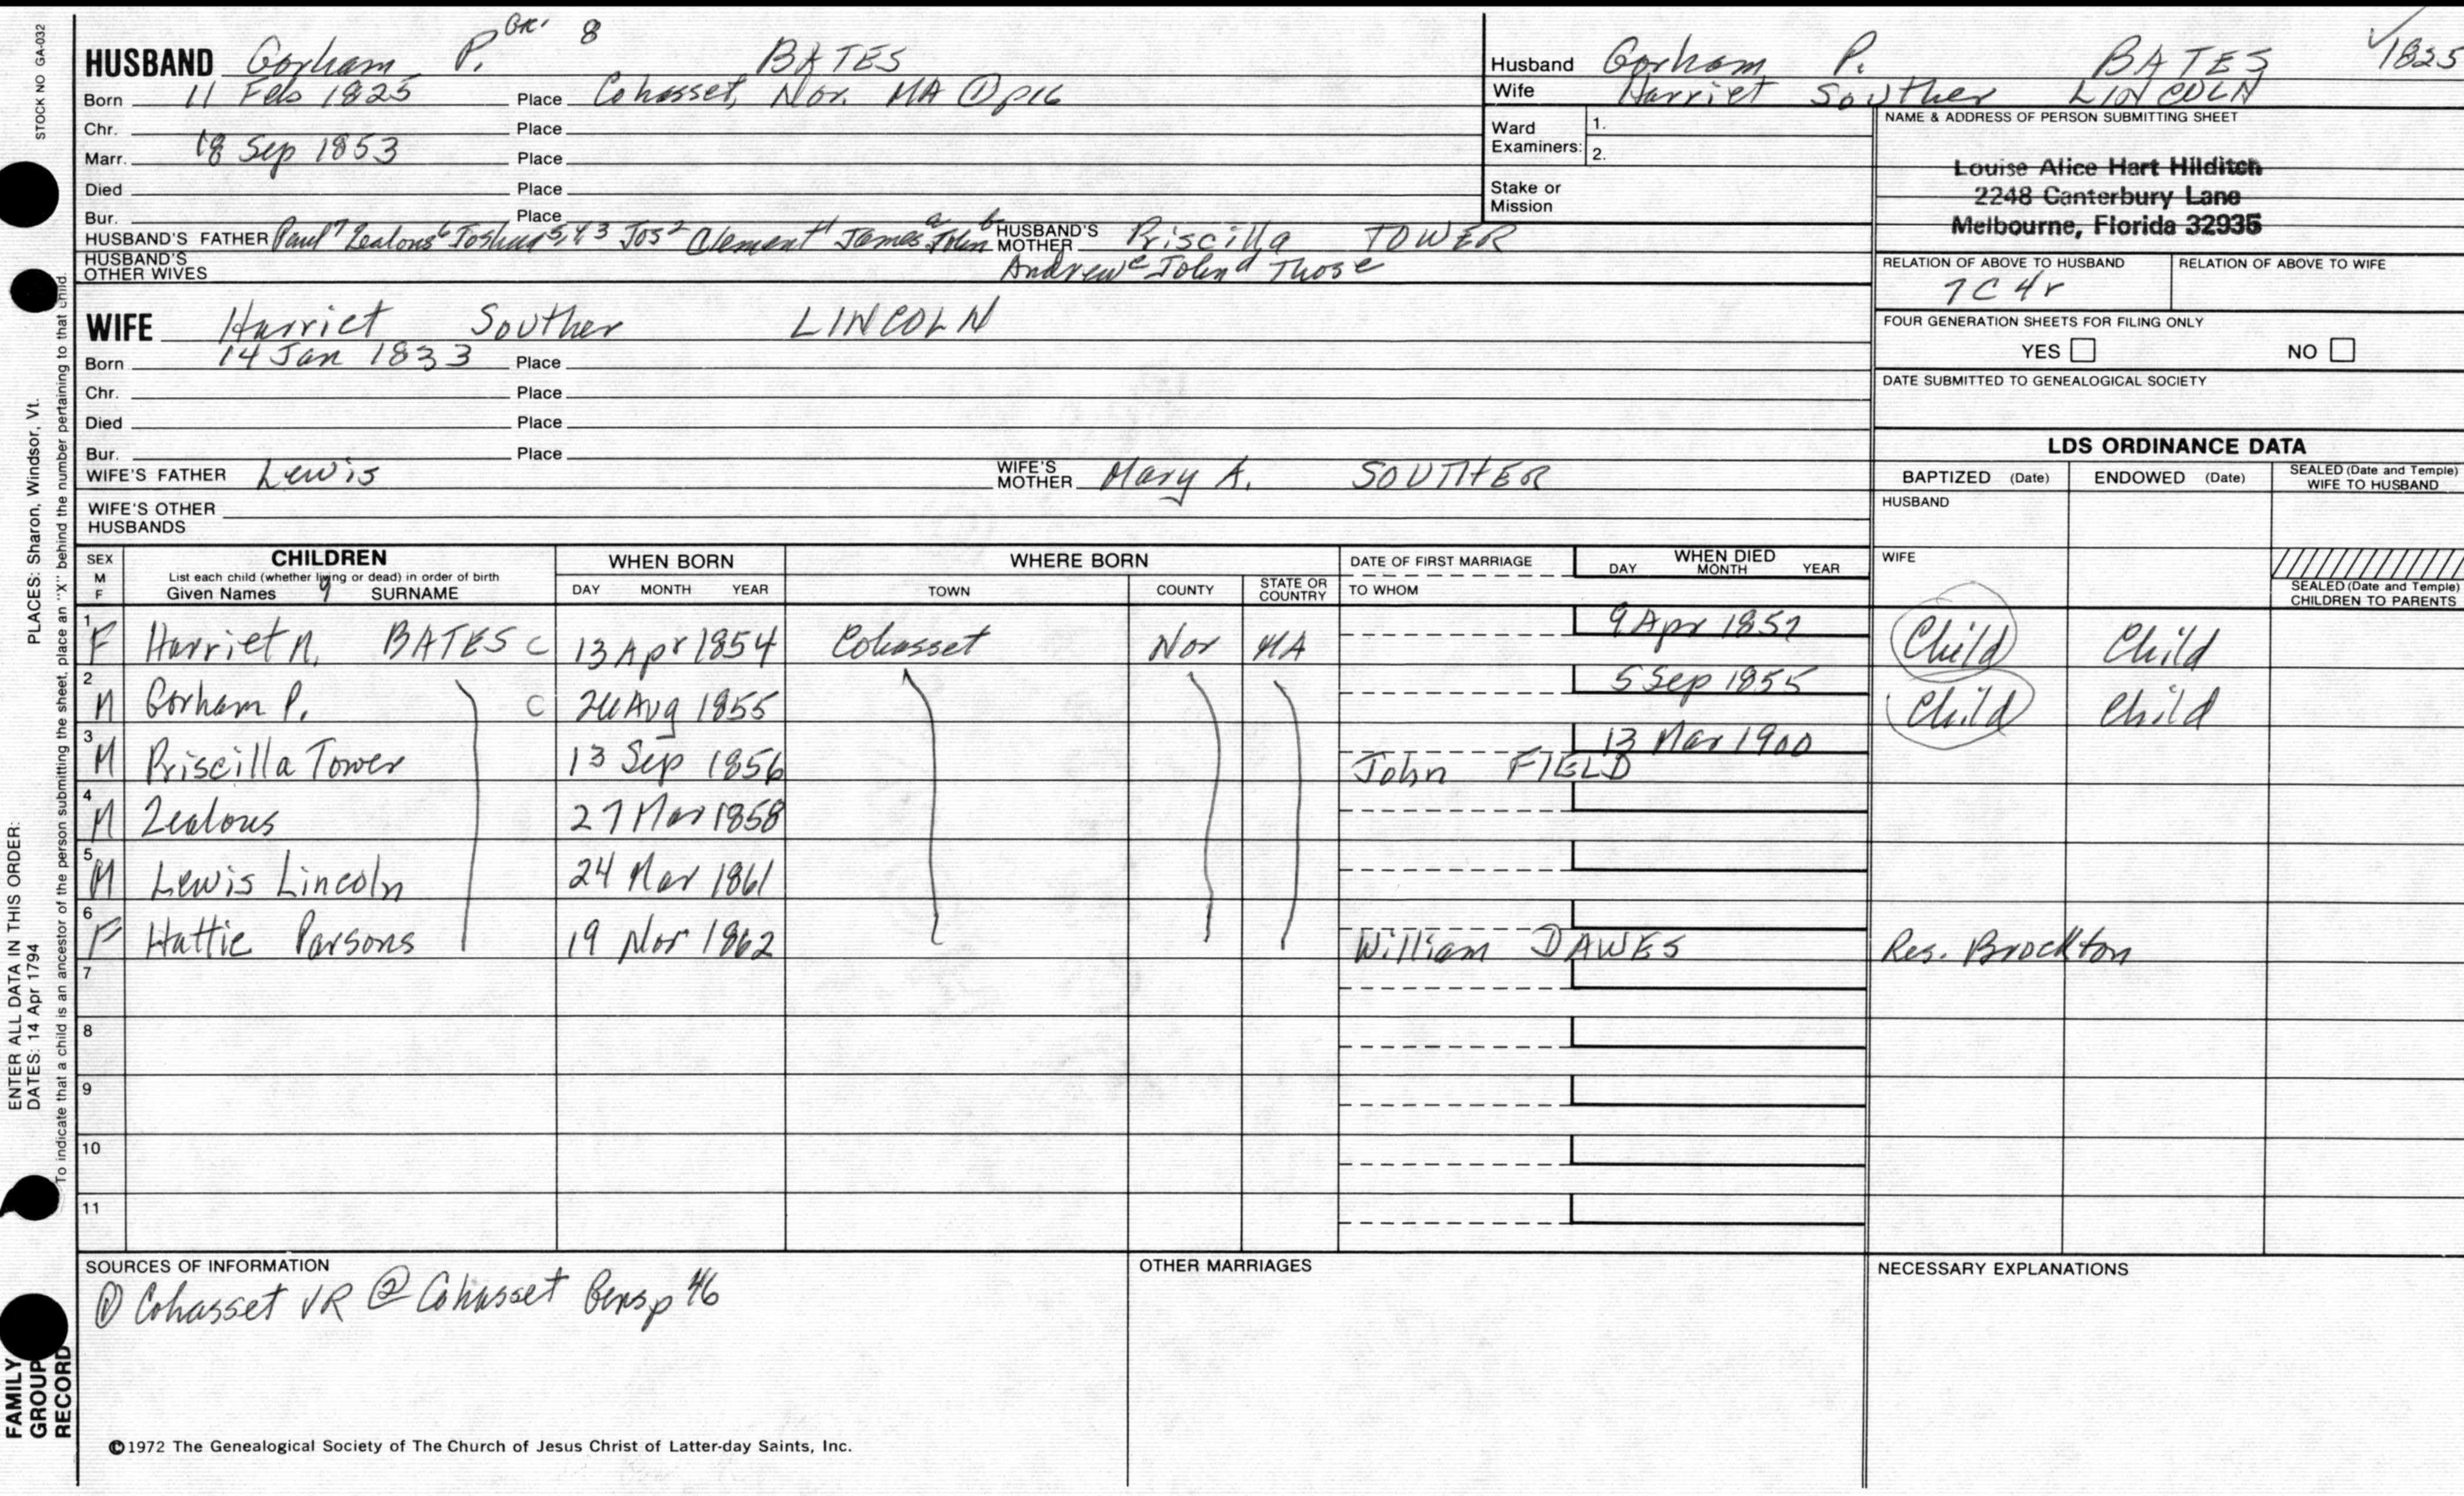 STOCK NO GA-032
HUSBAND Gorham P. 8 BATES
Born 11 Feb 1825 Place Cohasset, Nor. MA ① p16
Chr. Place
Marr. 18 Sep 1853 Place
Died Place
Bur. Place
HUSBAND'S FATHER Paul7 Zealous6 Joshua5,4,3 Jos2 Clement1 Jamesa Johnb HUSBAND'S MOTHER Priscilla TOWER
HUSBAND'S OTHER WIVES Andrewc Johnd Those
Husband Gorham P. BATES 1825
Wife Harriet Souther LINCOLN
Ward Examiners: 1.
2.
Stake or Mission
NAME & ADDRESS OF PERSON SUBMITTING SHEET
Louise Alice Hart Hilditch
2248 Canterbury Lane
Melbourne, Florida 32935
RELATION OF ABOVE TO HUSBAND RELATION OF ABOVE TO WIFE
7C4r
FOUR GENERATION SHEETS FOR FILING ONLY
YES NO
DATE SUBMITTED TO GENEALOGICAL SOCIETY
WIFE Harriet Souther LINCOLN
Born 14 Jan 1833 Place
Chr. Place
Died Place
Bur. Place
WIFE'S FATHER Lewis WIFE'S MOTHER Mary A. SOUTHER
WIFE'S OTHER HUSBANDS
LDS ORDINANCE DATA
BAPTIZED (Date) ENDOWED (Date) SEALED (Date and Temple) WIFE TO HUSBAND
HUSBAND
WIFE
SEALED (Date and Temple) CHILDREN TO PARENTS
SEX M F CHILDREN WHEN BORN WHERE BORN DATE OF FIRST MARRIAGE WHEN DIED
List each child (whether living or dead) in order of birth
Given Names 9 SURNAME DAY MONTH YEAR TOWN COUNTY STATE OR COUNTRY TO WHOM DAY MONTH YEAR
1 F Harriet N. BATES C 13 Apr 1854 Cohasset Nor MA 9 Apr 1857 Child Child
2 M Gorham P. C Aug 1855 5 Sep 1855 Child Child
3 M Priscilla Tower 13 Sep 1856 John FIELD 13 Mar 1900
4 M Zealous 27 Mar 1858
5 M Lewis Lincoln 24 Mar 1861
6 F Hattie Parsons 19 Nov 1862 William DAWES Res. Brockton
7
8
9
10
11
SOURCES OF INFORMATION
① Cohasset VR ② Cohasset Gens p 46
OTHER MARRIAGES
NECESSARY EXPLANATIONS
©1972 The Genealogical Society of The Church of Jesus Christ of Latter-day Saints, Inc.
ENTER ALL DATA IN THIS ORDER:
DATES: 14 Apr 1794 PLACES: Sharon, Windsor, Vt.
To indicate that a child is an ancestor of the person submitting the sheet, place an "X" behind the number pertaining to that child.
FAMILY GROUP RECORD